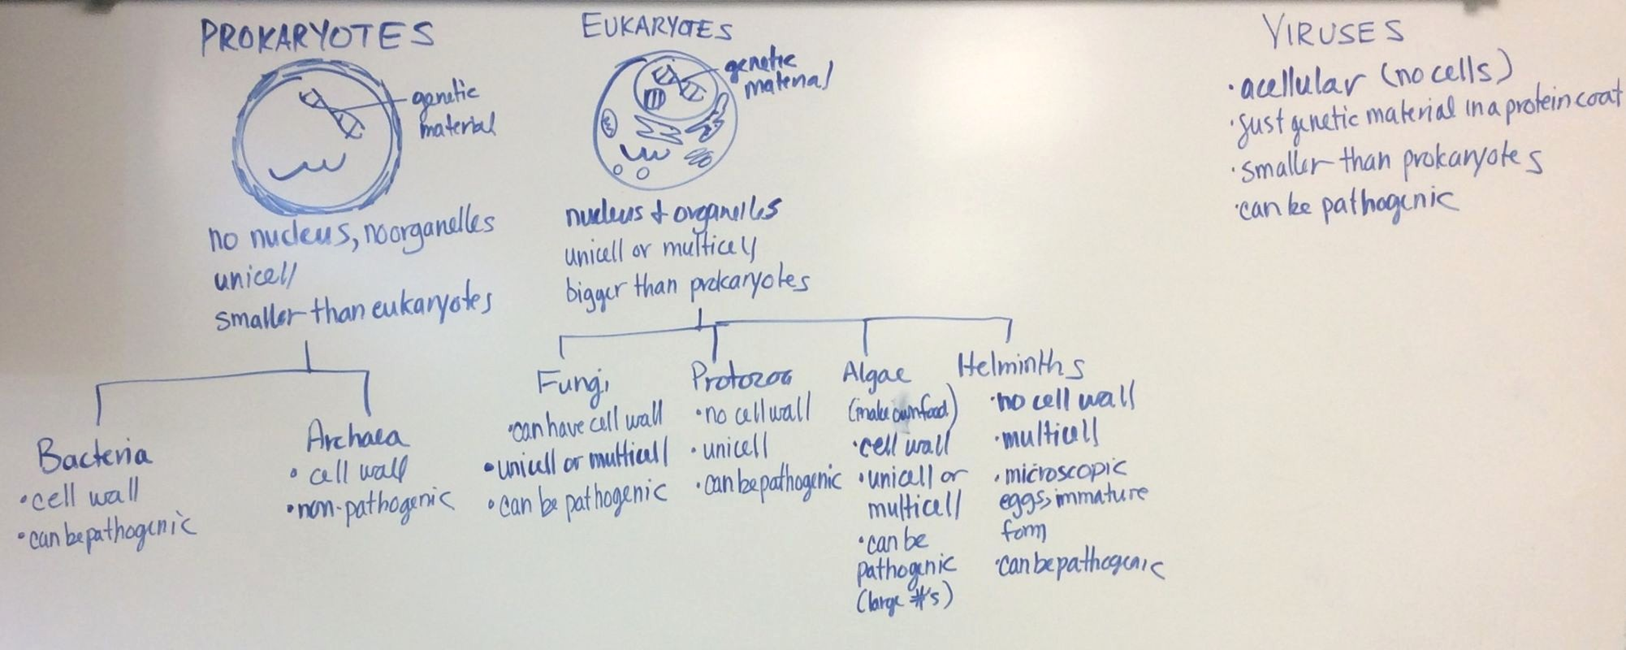 PROKARYOTES
genetic
material
no nucleus, no organelles
unicell
smaller than eukaryotes
Bacteria
• cell wall
• can be pathogenic
Archaea
• cell wall
• non-pathogenic
EUKARYOTES
genetic
material
nucleus + organelles
unicell or multicell
bigger than prokaryotes
Fungi
• can have cell wall
• unicell or multicell
• can be pathogenic
Protozoa
• no cell wall
• unicell
• can be pathogenic
Algae
(make own food)
• cell wall
• unicell or
multicell
• can be
pathogenic
(large #'s)
Helminths
• no cell wall
• multicell
• microscopic
eggs, immature
form
• can be pathogenic
VIRUSES
• acellular (no cells)
• just genetic material in a protein coat
• smaller than prokaryotes
• can be pathogenic